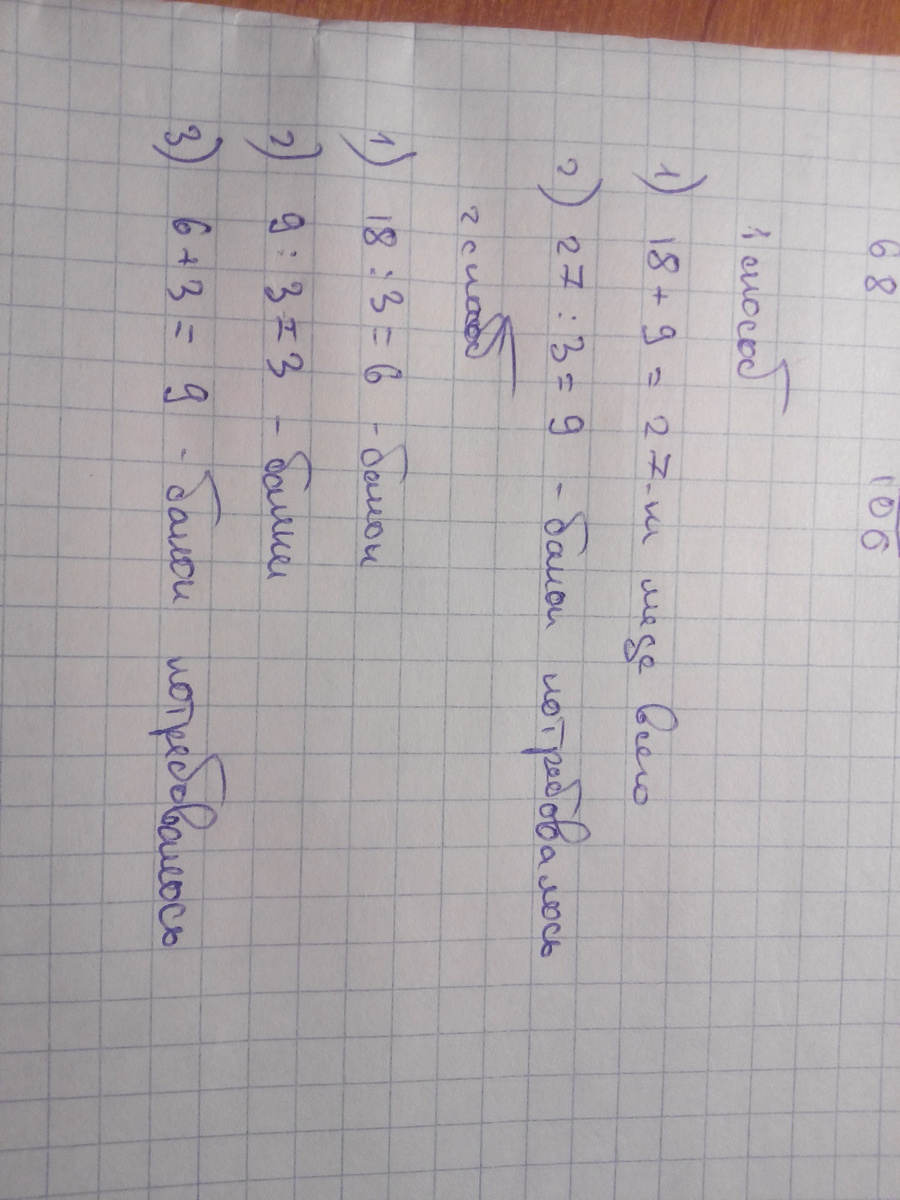 68 106
1 способ
1) 18 + 9 = 27 - м меда всего
2) 27 : 3 = 9 - банок потребовалось
2 способ
1) 18 : 3 = 6 - банок
2) 9 : 3 = 3 - банки
3) 6 + 3 = 9 - банок потребовалось